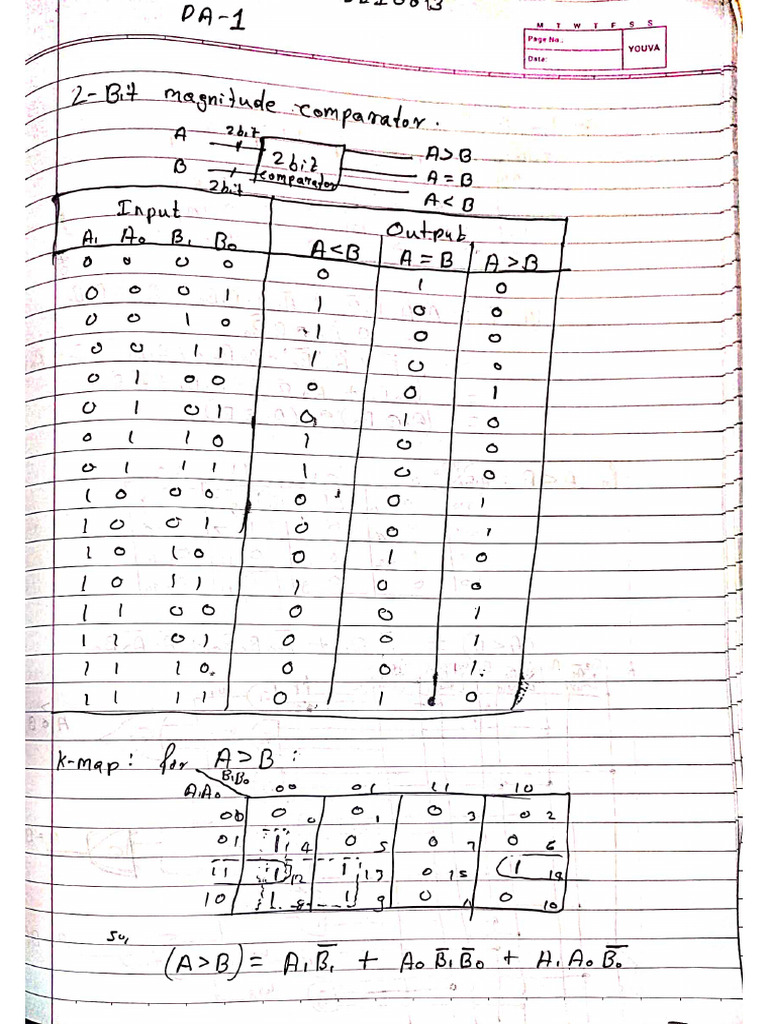 DA-1
M T W T F S S
Page No.:
YOUVA
Date:
2-Bit magnitude comparator.
A 2bit A>B
2bit comparator A=B
B 2bit A<B
Input Output
A₁ A₀ B₁ B₀ A<B A=B A>B
0 0 0 0 0 1 0
0 0 0 1 1 0 0
0 0 1 0 1 0 0
0 0 1 1 1 0 0
0 1 0 0 0 0 1
0 1 0 1 0 1 0
0 1 1 0 1 0 0
0 1 1 1 1 0 0
1 0 0 0 0 0 1
1 0 0 1 0 0 1
1 0 1 0 0 1 0
1 0 1 1 1 0 0
1 1 0 0 0 0 1
1 1 0 1 0 0 1
1 1 1 0 0 0 1
1 1 1 1 0 1 0
K-map: for A>B:
A₁A₀ B₁B₀ 00 01 11 10
00 0 0 0 1 0 3 0 2
01 1 4 0 5 0 7 0 6
11 1 12 1 13 0 15 1
10 1 8 1 9 0 0 10
So,
(A>B) = A₁B̅₁ + A₀B̅₁B̅₀ + A₁A₀B̅₀